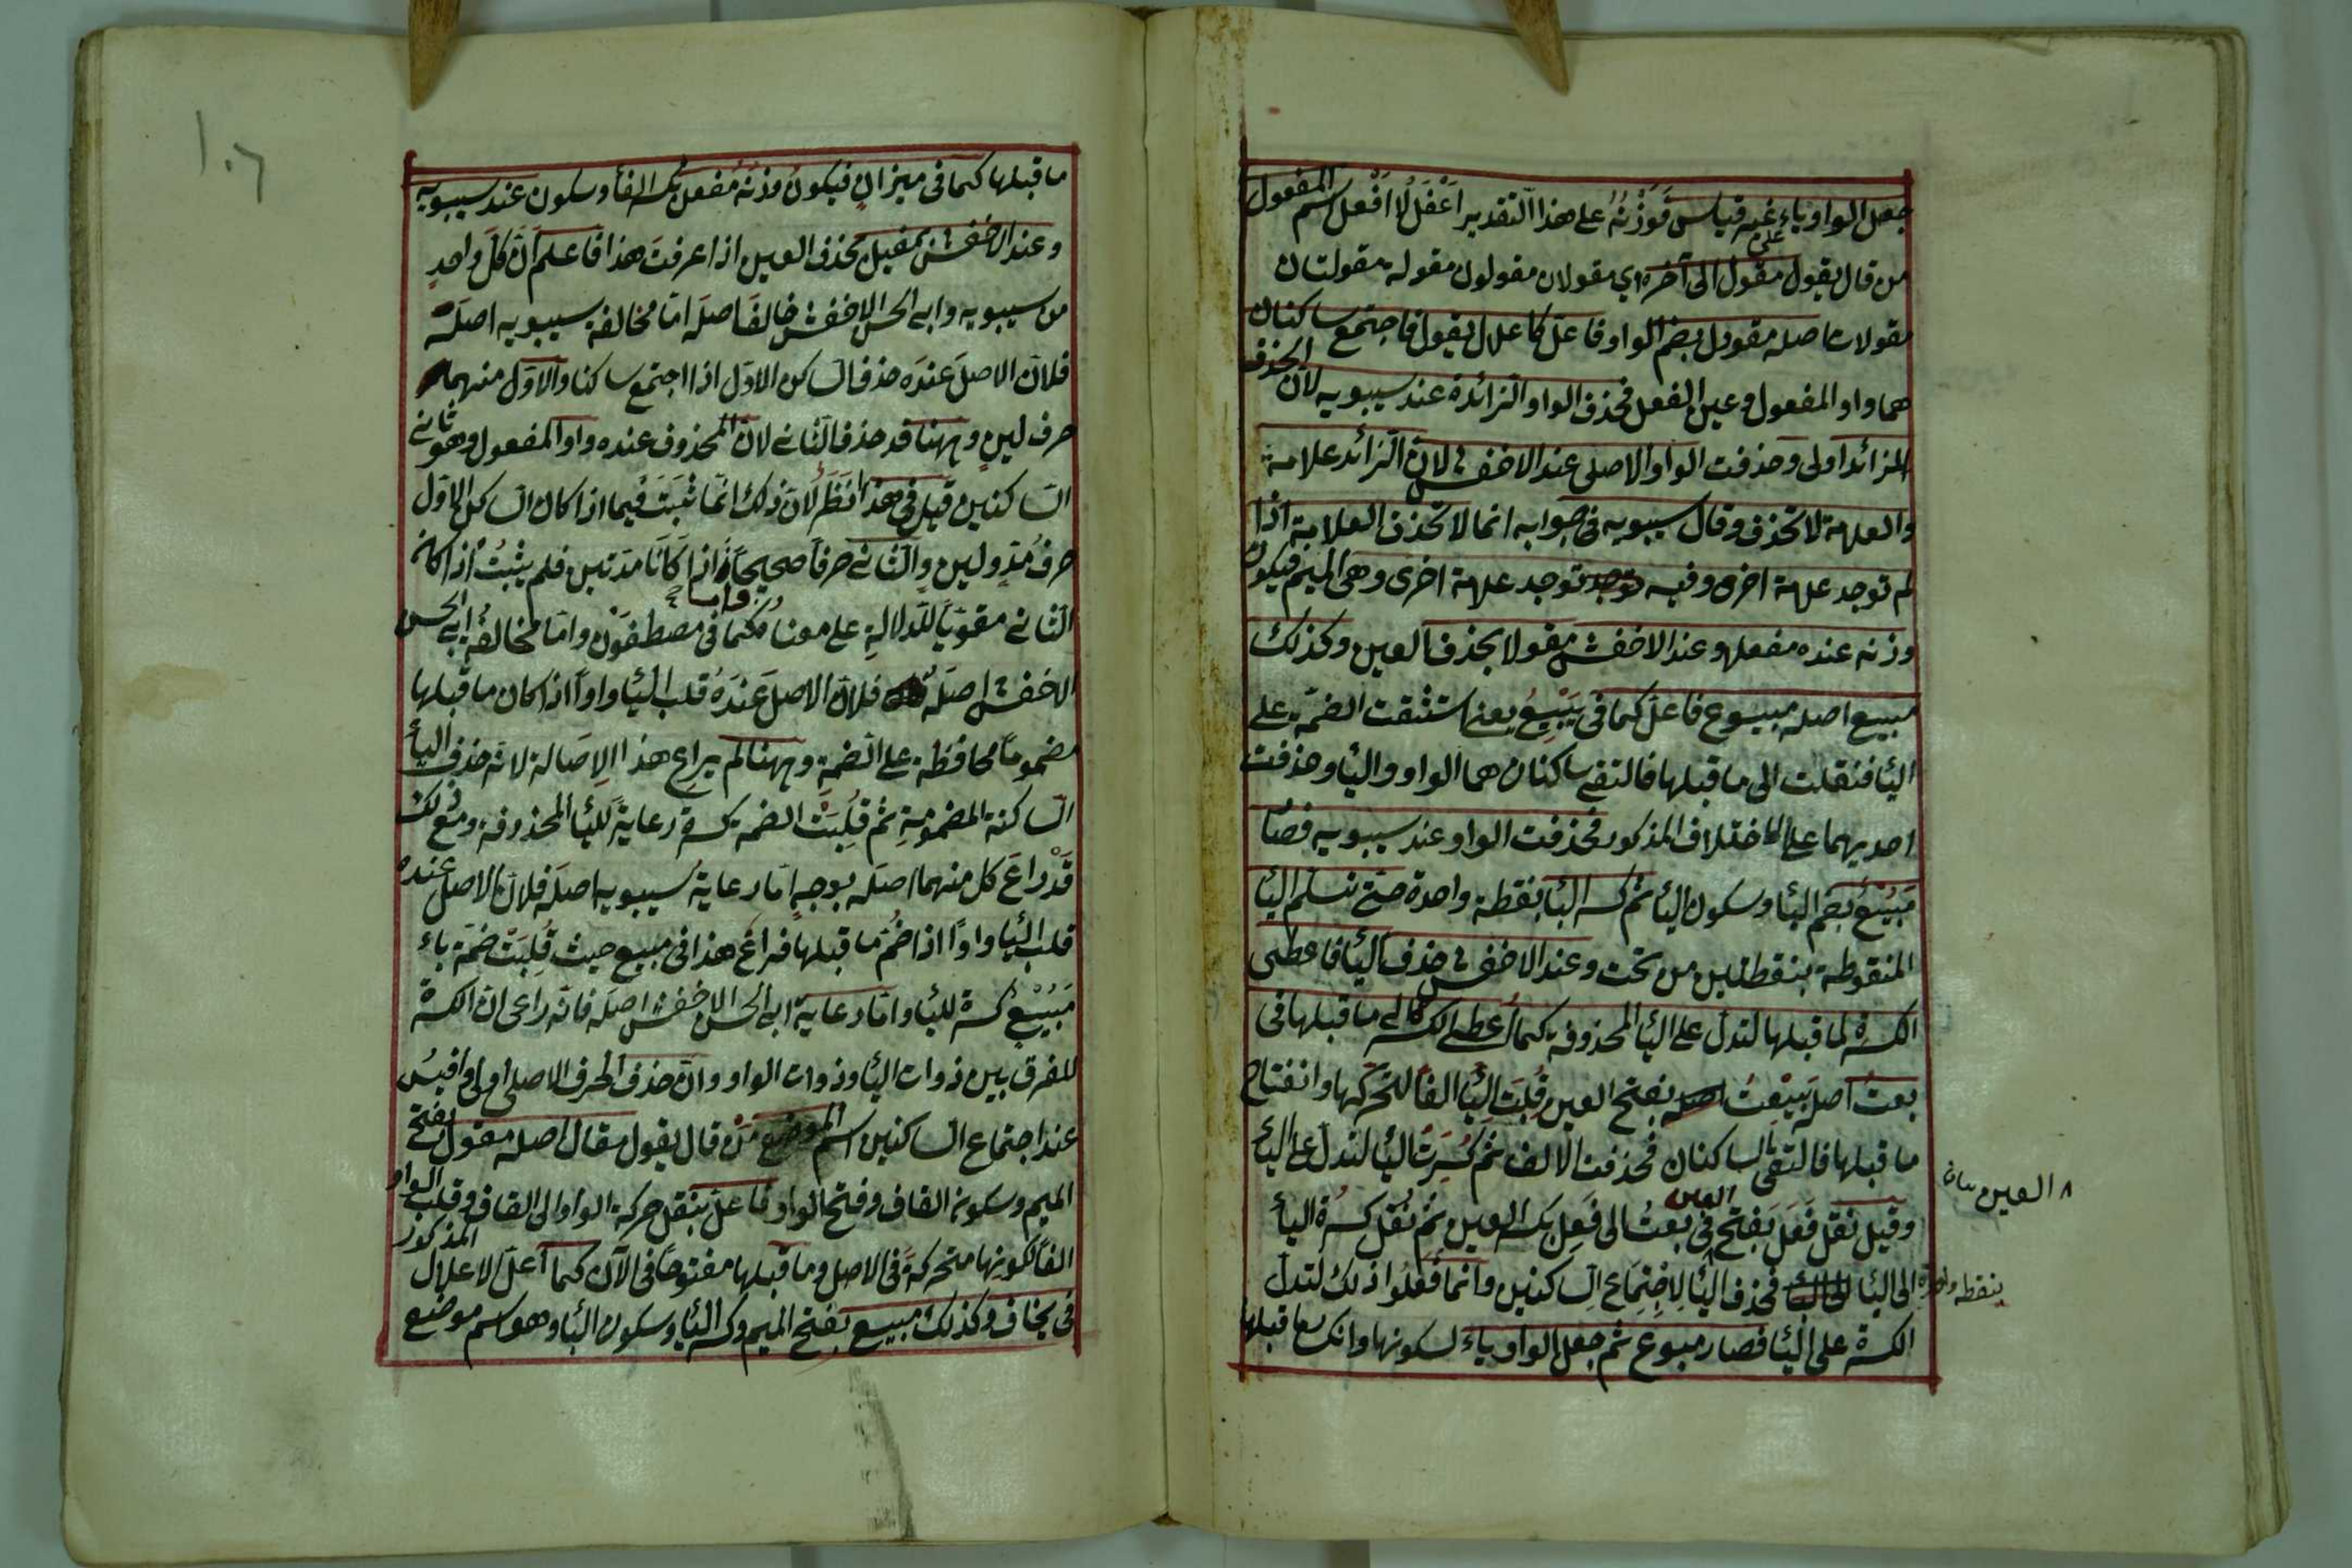 جعل الواو ياء غير قياس فوزنه على هذا التقدير اعفل لا افعل اسم المفعول
من قال يقول مقول الى آخره اي مقولان مقولون مقولة مقولتان
مقولات اصله مقوول بضم الواو فاعل كاعلال يقول فاجتمع ساكنان
هما واو المفعول وعين الفعل فحذف الواو الزائدة عند سيبويه لان الحذف
الزائد اولى وحذفت الواو الاصلى عند الاخفش لان الزائد علامة
والعلامة لا تحذف وقال سيبويه فى جوابه انما لا تحذف العلامة اذا
لم توجد علامة اخرى وفيه توجد علامة اخرى وهى الميم فيكون
وزنه عنده مفعل وعند الاخفش مقولا بحذف العين وكذلك
مبيع اصله مبيوع فاعل كما فى يبيع يعنى استثقلت الضمة على
اليا فنقلت الى ما قبلها فالتقى ساكنان هما الواو واليا وحذفت
احديهما على الاختلاف المذكور فحذفت الواو عند سيبويه فصا
مبيع بضم البا وسكون اليا ثم كسر البا بنقطة واحدة حتى تسلم اليا
المنقوطة بنقطتين من تحت وعند الاخفش حذف اليا فاعطى
الكسرة لما قبلها لتدل على اليا المحذوفة كما اعطى الكسرة الى ما قبلها فى
بعت اصله بيعت بفتح العين قلبت اليا الفا لتحركها وانفتاح
ما قبلها فالتقى الساكنان فحذفت الالف ثم كسرت البا لتدل على اليا
وقيل نقل فعل بفتح العين فى بعت الى فعل بكسر العين ثم نقل كسرة اليا
الى البا بنقطه واحدة فحذف اليا لاجتماع الساكنين وانما فعلوا ذلك لتدل
الكسرة على اليا فصار مبوع ثم جعل الواو ياء لسكونها وانكسا ما قبلها
٨ العين
١٠٦
ما قبلها كما فى ميزان فيكون وزنه مفعل بكسر الفا وسكون عند سيبويه
وعند الاخفش مفيل بحذف العين اذا عرفت هذا فاعلم ان كل واحد
من سيبويه وابى الحسن الاخفش خالفا اصله اما مخالفة سيبويه اصله
فلان الاصل عنده حذف الساكن الاول اذا اجتمع ساكنا والاول منهما
حرف لين وههنا قد حذف الثانى لان المحذوف عنده واو المفعول وهو ثانى
الساكنين قيل فى هذا نظر لان ذلك انما ثبت فيما اذا كان الساكن الاول
حرف مد ولين والثانى حرفا صحيحا واما اذا كانا مدتين فلم يثبت اذا كان
الثانى مقويا للدلالة على معنا كما فى مصطفون واما مخالفة ابى الحسن
الاخفش اصله فلان الاصل عنده قلب اليا واوا اذا كان ما قبلها
مضموما محافظة على الضمة وههنا لم يراع هذا الاصالة لانه حذف اليا
الساكنة المضمومة ثم قلبت الضمة كسرة رعاية لليا المحذوفة ومع ذلك
قد راع كل منهما اصله بوجه اما رعاية سيبويه اصله فلان الاصل عنده
قلب اليا واوا اذا ضم ما قبلها فراع هذا فى مبيع حيث قلبت ضمة باء
مبيع كسرة لليا واما رعاية ابى الحسن الاخفش اصله فانه راعى ان الكسرة
للفرق بين ذوات اليا وذوات الواو وان حذف الحرف الاصلى اولى واقيس
عند اجتماع الساكنين اسم الموضع من قال يقول مقال اصله مقول بفتح
الميم وسكون القاف وفتح الواو فاعل بنقل حركة الواو الى القاف وقلب الواو
الفا لكونها متحركة فى الاصل وما قبلها مفتوحا فى الآن كما اعل الاعلال المذكور
فى يخاف وكذلك مبيع بفتح الميم وكسر اليا وسكون البا وهو اسم موضع